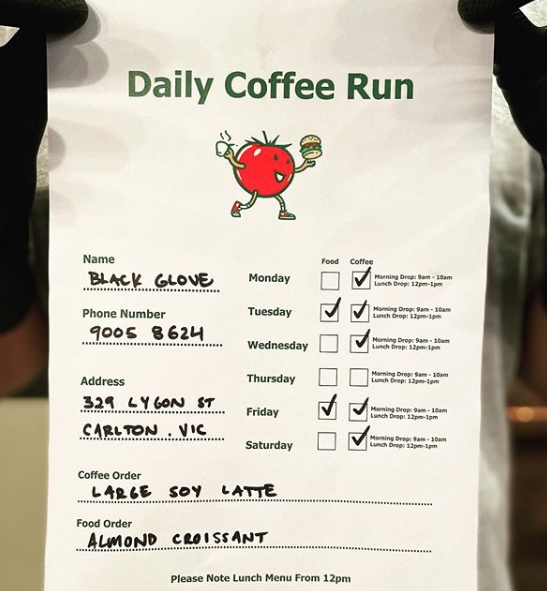 Daily Coffee Run
Name
BLACK GLOVE
Phone Number
9005 8624
Address
329 LYGON ST
CARLTON . VIC
Food Coffee
Monday Morning Drop: 9am - 10am
Lunch Drop: 12pm-1pm
Tuesday Morning Drop: 9am - 10am
Lunch Drop: 12pm-1pm
Wednesday Morning Drop: 9am - 10am
Lunch Drop: 12pm-1pm
Thursday Morning Drop: 9am - 10am
Lunch Drop: 12pm-1pm
Friday Morning Drop: 9am - 10am
Lunch Drop: 12pm-1pm
Saturday Morning Drop: 9am - 10am
Lunch Drop: 12pm-1pm
Coffee Order
LARGE SOY LATTE
Food Order
ALMOND CROISSANT
Please Note Lunch Menu From 12pm